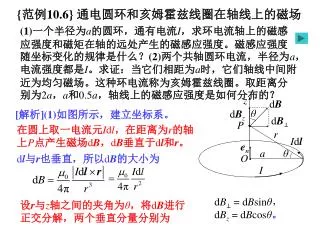 {范例10.6} 通电圆环和亥姆霍兹线圈在轴线上的磁场
(1)一个半径为a的圆环，通有电流I，求环电流轴上的磁感
应强度和磁矩在轴的远处产生的磁感应强度。磁感应强度
随坐标变化的规律是什么？(2)两个共轴圆环电流，半径为a，
电流强度都是I。求证：当它们相距为a时，它们轴线中间附
近为均匀磁场。这种环电流称为亥姆霍兹线圈。取距离分
别为2a，a和0.5a，轴线上的磁感应强度是如何分布的？
[解析](1)如图所示，建立坐标系。
在圆上取一电流元Idl，在距离为r的轴
上P点产生磁场dB，dB垂直于dl和r。
dl与r也垂直，所以dB的大小为
dB = μ₀/4π |Idl × r|/r³ = μ₀/4π Idl/r²
设r与z轴之间的夹角为θ，将dB进行
正交分解，两个垂直分量分别为
z
dB
dBz
P
dB⊥
r
Idl
θ
O
a
I
dB⊥ = dBsinθ,
dBz = dBcosθ。